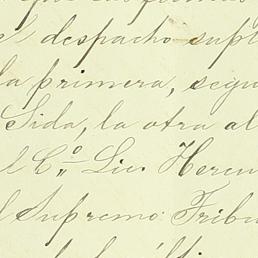 el despacho supl
la primera, segu
Sida, la otra al
l C.º Lic. Heren
l Supremo Tribu